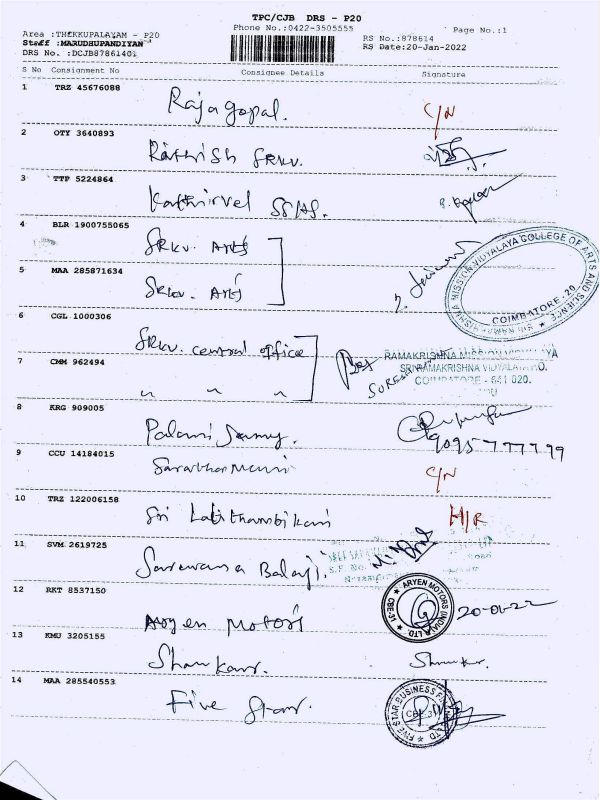 TPC/CJB DRS - P20
Phone No.:0422-3505555
Page No.:1
Area :THEKKUPALAYAM - P20
RS No.:878614
Staff :MARUDHUPANDIYAN
RS Date:20-Jan-2022
DRS No. :DCJB87861401
S No Consignment No Consignee Details Signature
1 TRZ 45676088
Rajagopal. C/N
2 OTY 3640893
Rathish SRKV.
3 TTP 5224864
Kathirvel SSHS.
4 BLR 1900755065
SRKV. Arts
5 MAA 285871634
SRKV. Arts
SRI RAMAKRISHNA MISSION VIDYALAYA COLLEGE OF ARTS AND SCIENCE
COIMBATORE - 20
6 CGL 1000306
SRKV. central office
RAMAKRISHNA MISSION VIDYALAYA
SRI RAMAKRISHNA VIDYALAYA PO.
COIMBATORE - 641 020.
7 CMM 962494
" " "
8 KRG 909005
Palani Samy.
9095777799
9 CCU 14184015
C/N
10 TRZ 122006158
Sri Lalithambikai H/R
11 SVM 2619725
Saravana Balaji.
12 RKT 8537150
Aryen Motors 20-01-22
ARYEN MOTORS (INDIA) P. LTD.
CBE-31
13 KMU 3205155
Shankar. Shankar.
14 MAA 285540553
Five Star.
FIVE STAR BUSINESS FINANCE LTD
CBE-31